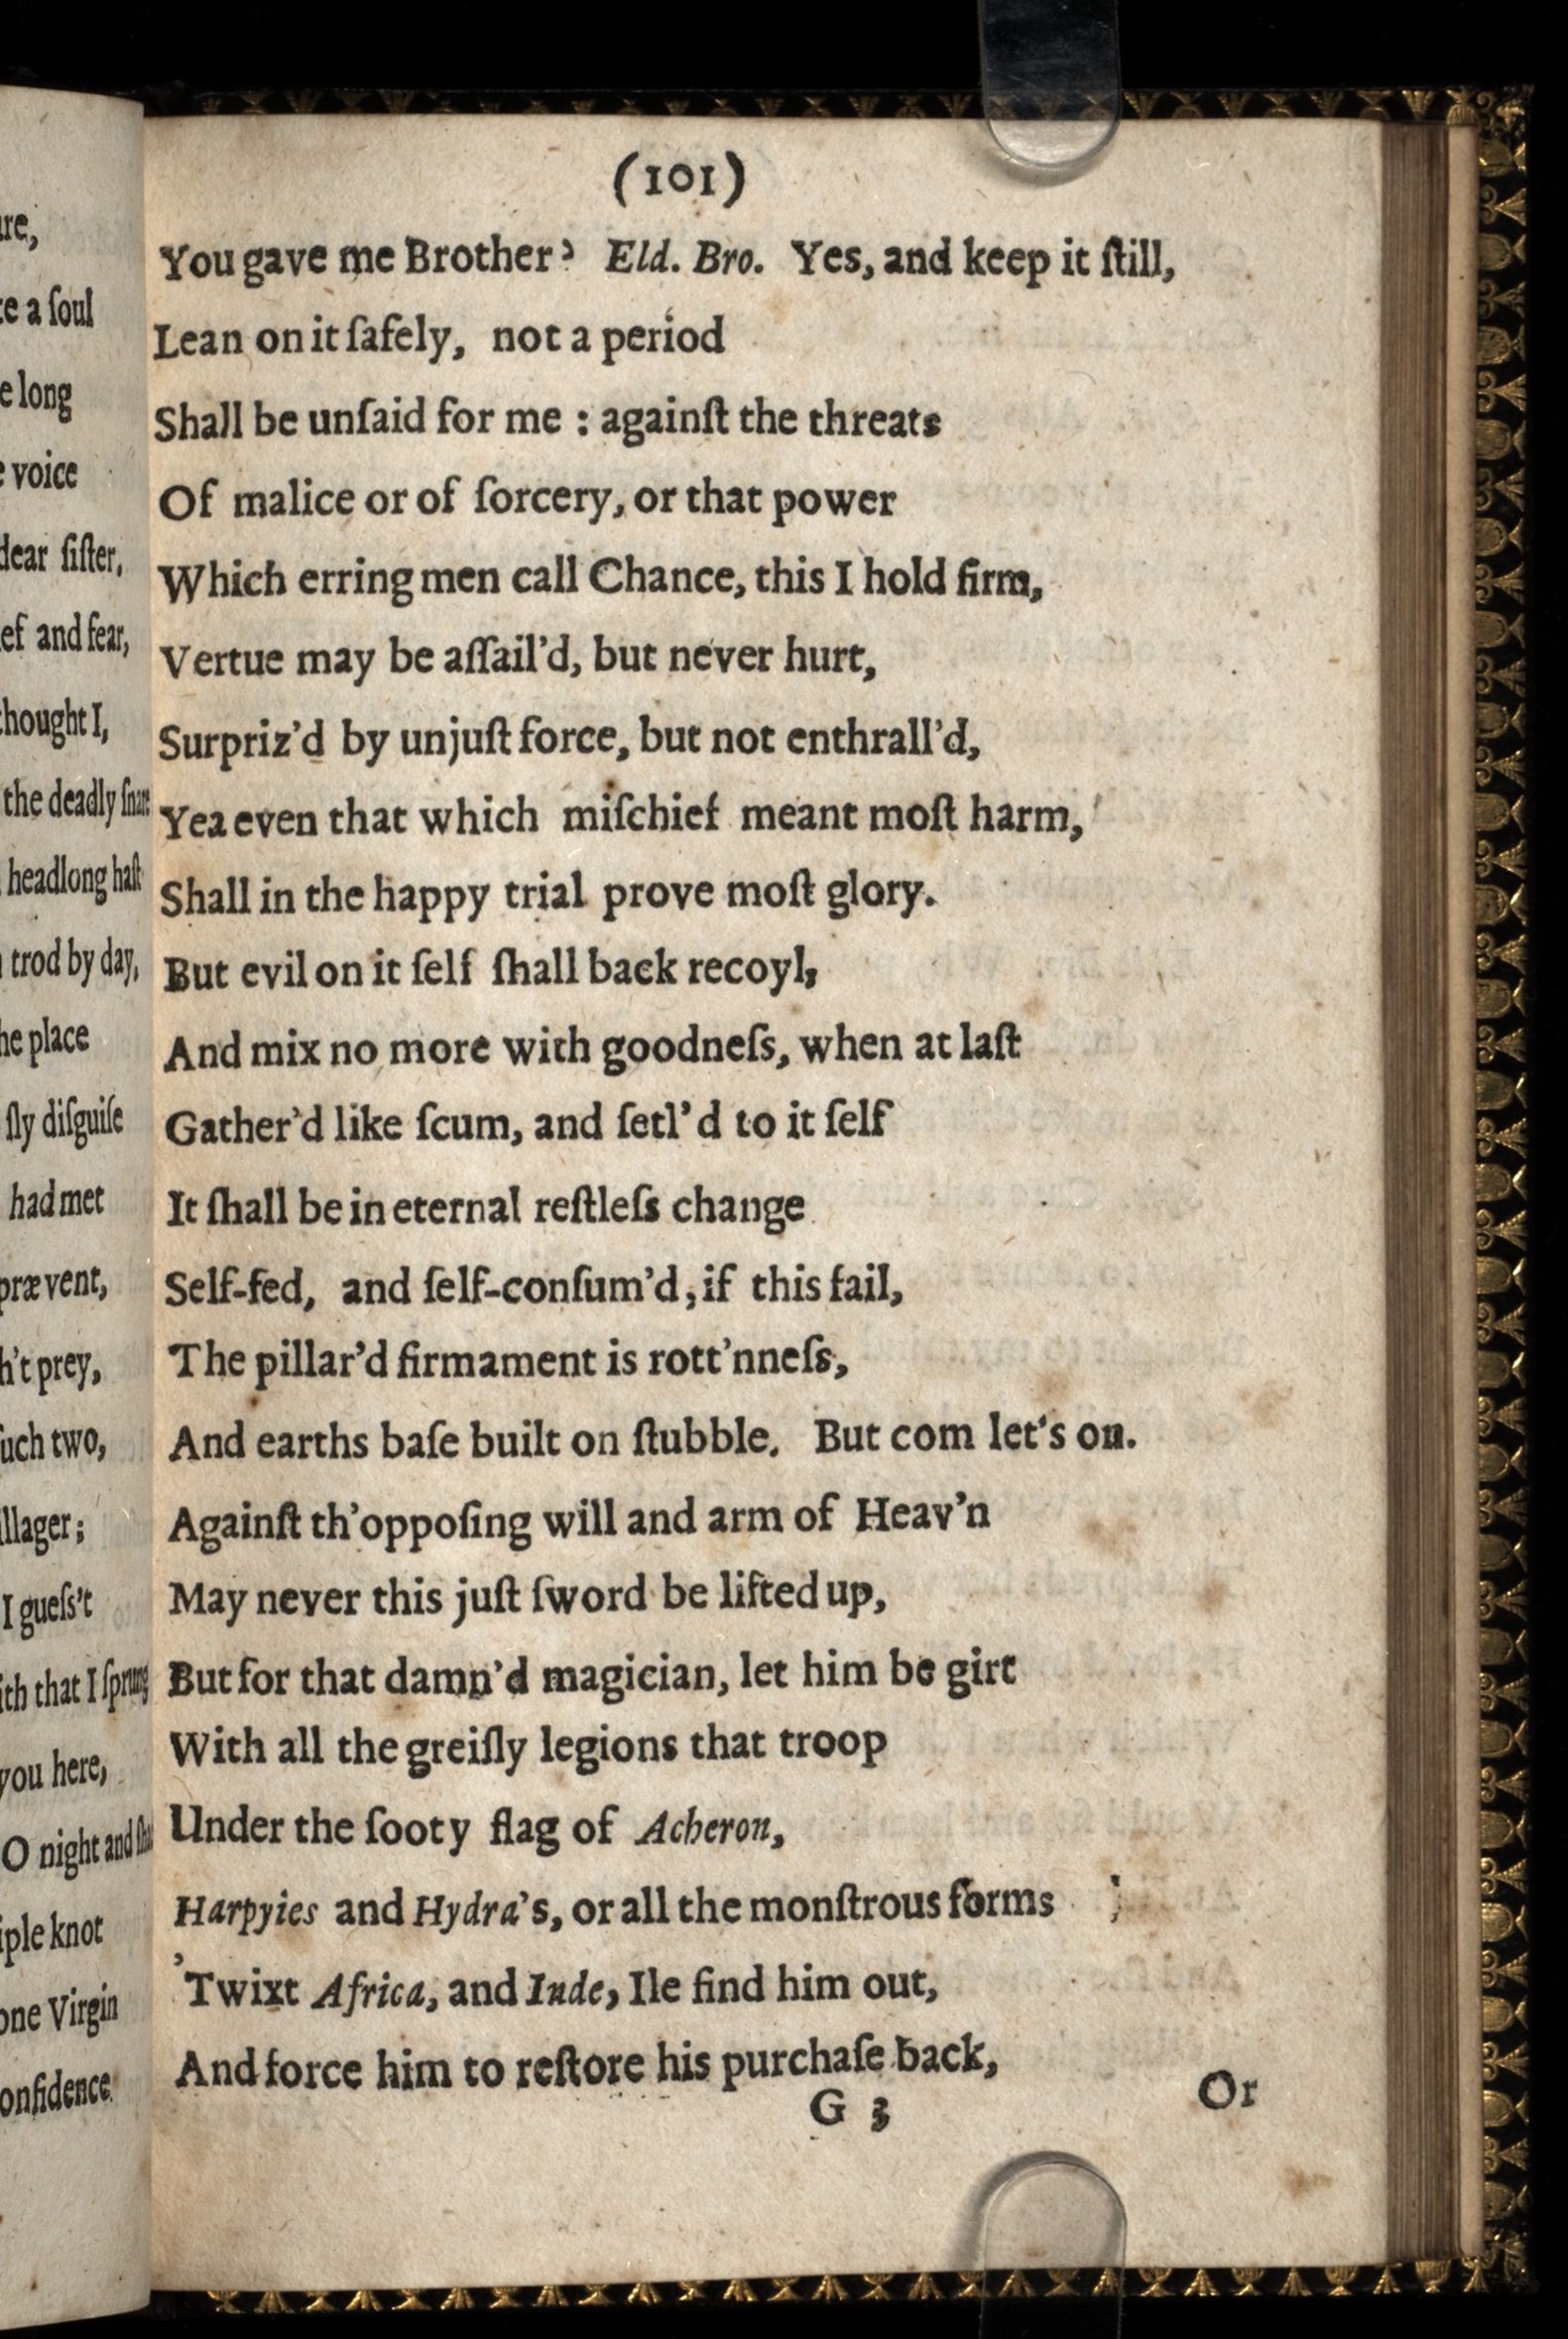 ure,
te a ſoul
e long
e voice
dear ſiſter,
ief and fear,
thought I,
the deadly ſnare
headlong haſt
trod by day,
he place
ſly diſguiſe
had met
prævent,
h't prey,
ſuch two,
illager;
I gueſs't
ith that I ſprung
you here,
O night and
iple knot
one Virgin
onfidence
(101)
You gave me Brother? Eld. Bro. Yes, and keep it ſtill,
Lean on it ſafely, not a period
Shall be unſaid for me : againſt the threats
Of malice or of ſorcery, or that power
Which erring men call Chance, this I hold firm,
Vertue may be aſſail'd, but never hurt,
Surpriz'd by unjuſt force, but not enthrall'd,
Yea even that which miſchief meant moſt harm,
Shall in the happy trial prove moſt glory.
But evil on it ſelf ſhall back recoyl,
And mix no more with goodneſs, when at laſt
Gather'd like ſcum, and ſetl'd to it ſelf
It ſhall be in eternal reſtleſs change
Self-fed, and ſelf-conſum'd, if this fail,
The pillar'd firmament is rott'nneſs,
And earths baſe built on ſtubble. But com let's on.
Againſt th'oppoſing will and arm of Heav'n
May never this juſt ſword be lifted up,
But for that damn'd magician, let him be girt
With all the greiſly legions that troop
Under the ſooty flag of Acheron,
Harpyies and Hydra's, or all the monſtrous forms
'Twixt Africa, and Inde, Ile find him out,
And force him to reſtore his purchaſe back,
G 3
Or